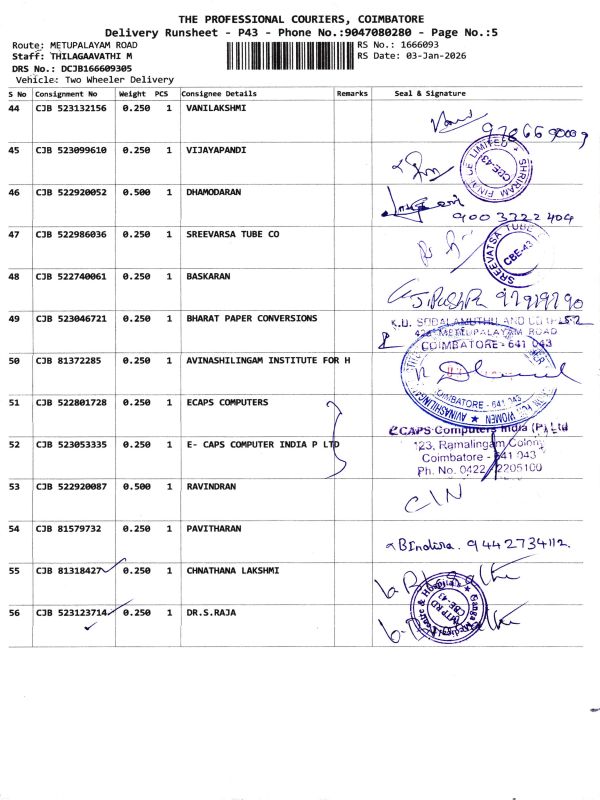 THE PROFESSIONAL COURIERS, COIMBATORE
Delivery Runsheet - P43 - Phone No.:9047080280 - Page No.:5
Route: METUPALAYAM ROAD RS No.: 1666093
Staff: THILAGAAVATHI M RS Date: 03-Jan-2026
DRS No.: DCJB166609305
Vehicle: Two Wheeler Delivery
S No Consignment No Weight PCS Consignee Details Remarks Seal & Signature
44 CJB 523132156 0.250 1 VANILAKSHMI
45 CJB 523099610 0.250 1 VIJAYAPANDI
SHRIRAM FINANCE LIMITED CBE-43
46 CJB 522920052 0.500 1 DHAMODARAN
9003722404
47 CJB 522986036 0.250 1 SREEVARSA TUBE CO
SREEVATSA TUBE CBE-43
48 CJB 522740061 0.250 1 BASKARAN
49 CJB 523046721 0.250 1 BHARAT PAPER CONVERSIONS
METTUPALAYAM ROAD
COIMBATORE - 641 043
50 CJB 81372285 0.250 1 AVINASHILINGAM INSTITUTE FOR H
COIMBATORE - 641 043
51 CJB 522801728 0.250 1 ECAPS COMPUTERS
ECAPS Computers India (P) Ltd
52 CJB 523053335 0.250 1 E- CAPS COMPUTER INDIA P LTD
123, Ramalingam Colony
Coimbatore - 641 043
Ph. No. 0422 2205100
53 CJB 522920087 0.500 1 RAVINDRAN
54 CJB 81579732 0.250 1 PAVITHARAN
BIndira. 9442734112.
55 CJB 81318427 0.250 1 CHNATHANA LAKSHMI
56 CJB 523123714 0.250 1 DR.S.RAJA
MTP RD
CBE-43